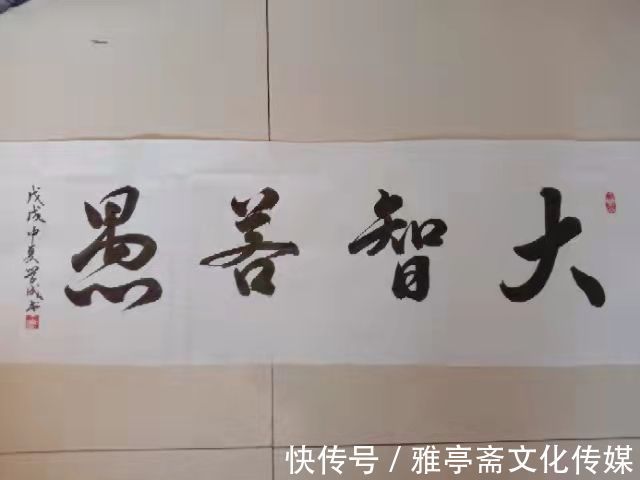 大智若愚
戊戌中夏学成书
快传号/雅亭斋文化传媒